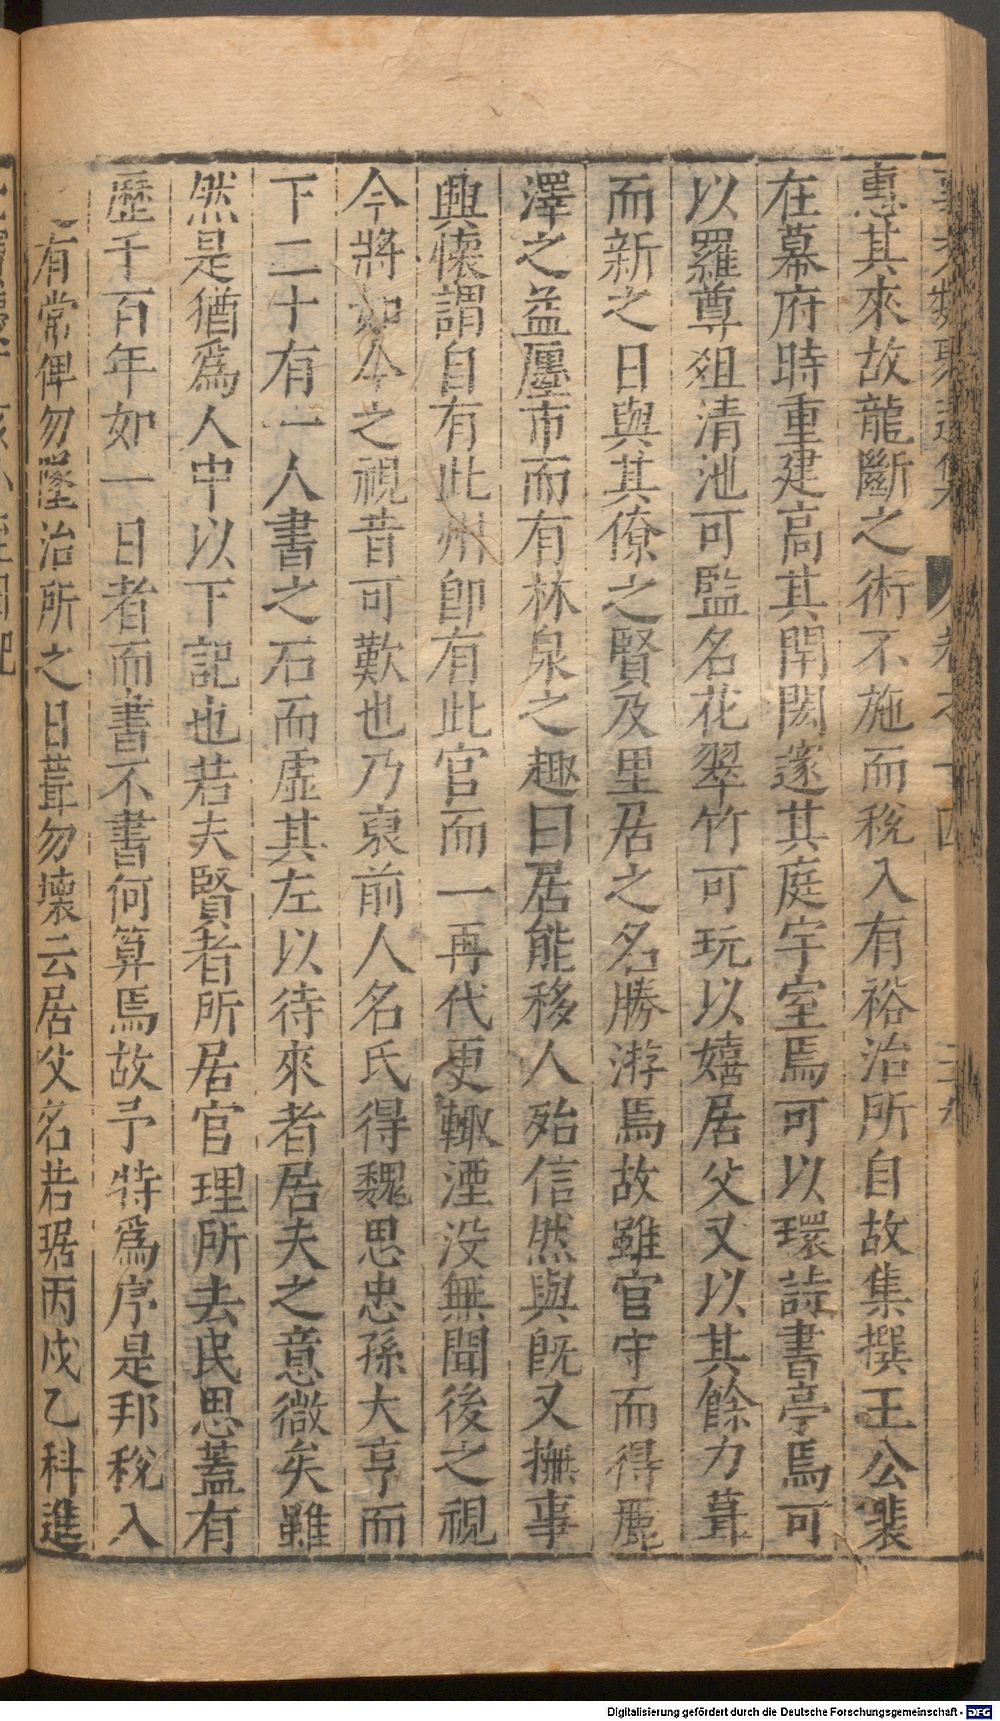 惠其來故龍斷之術不施而稅入有裕治所自故集撰王公裴
在幕府時重建高其閈閎邃其庭宇室焉可以環詩書亭焉可
以羅尊俎清池可監名花翠竹可玩以嬉居父又以其餘力葺
而新之日與其僚之賢及里居之名勝游焉故雖官守而得麗
澤之益廛市而有林泉之趣曰居能移人殆信然與既又撫事
興懷謂自有此州卽有此官而一再代更輙湮没無聞後之視
今將如今之視昔可歎也乃裒前人名氏得魏思忠孫大亨而
下二十有一人書之石而虛其左以待來者居夫之意微矣雖
然是猶爲人中以下記也若夫賢者所居官理所去民思蓋有
歷千百年如一日者而書不書何算焉故予特爲序是邦稅入
有常俾勿墜治所之日葺勿壞云居父名若琚丙戍乙科進
Digitalisierung gefördert durch die Deutsche Forschungsgemeinschaft - DFG